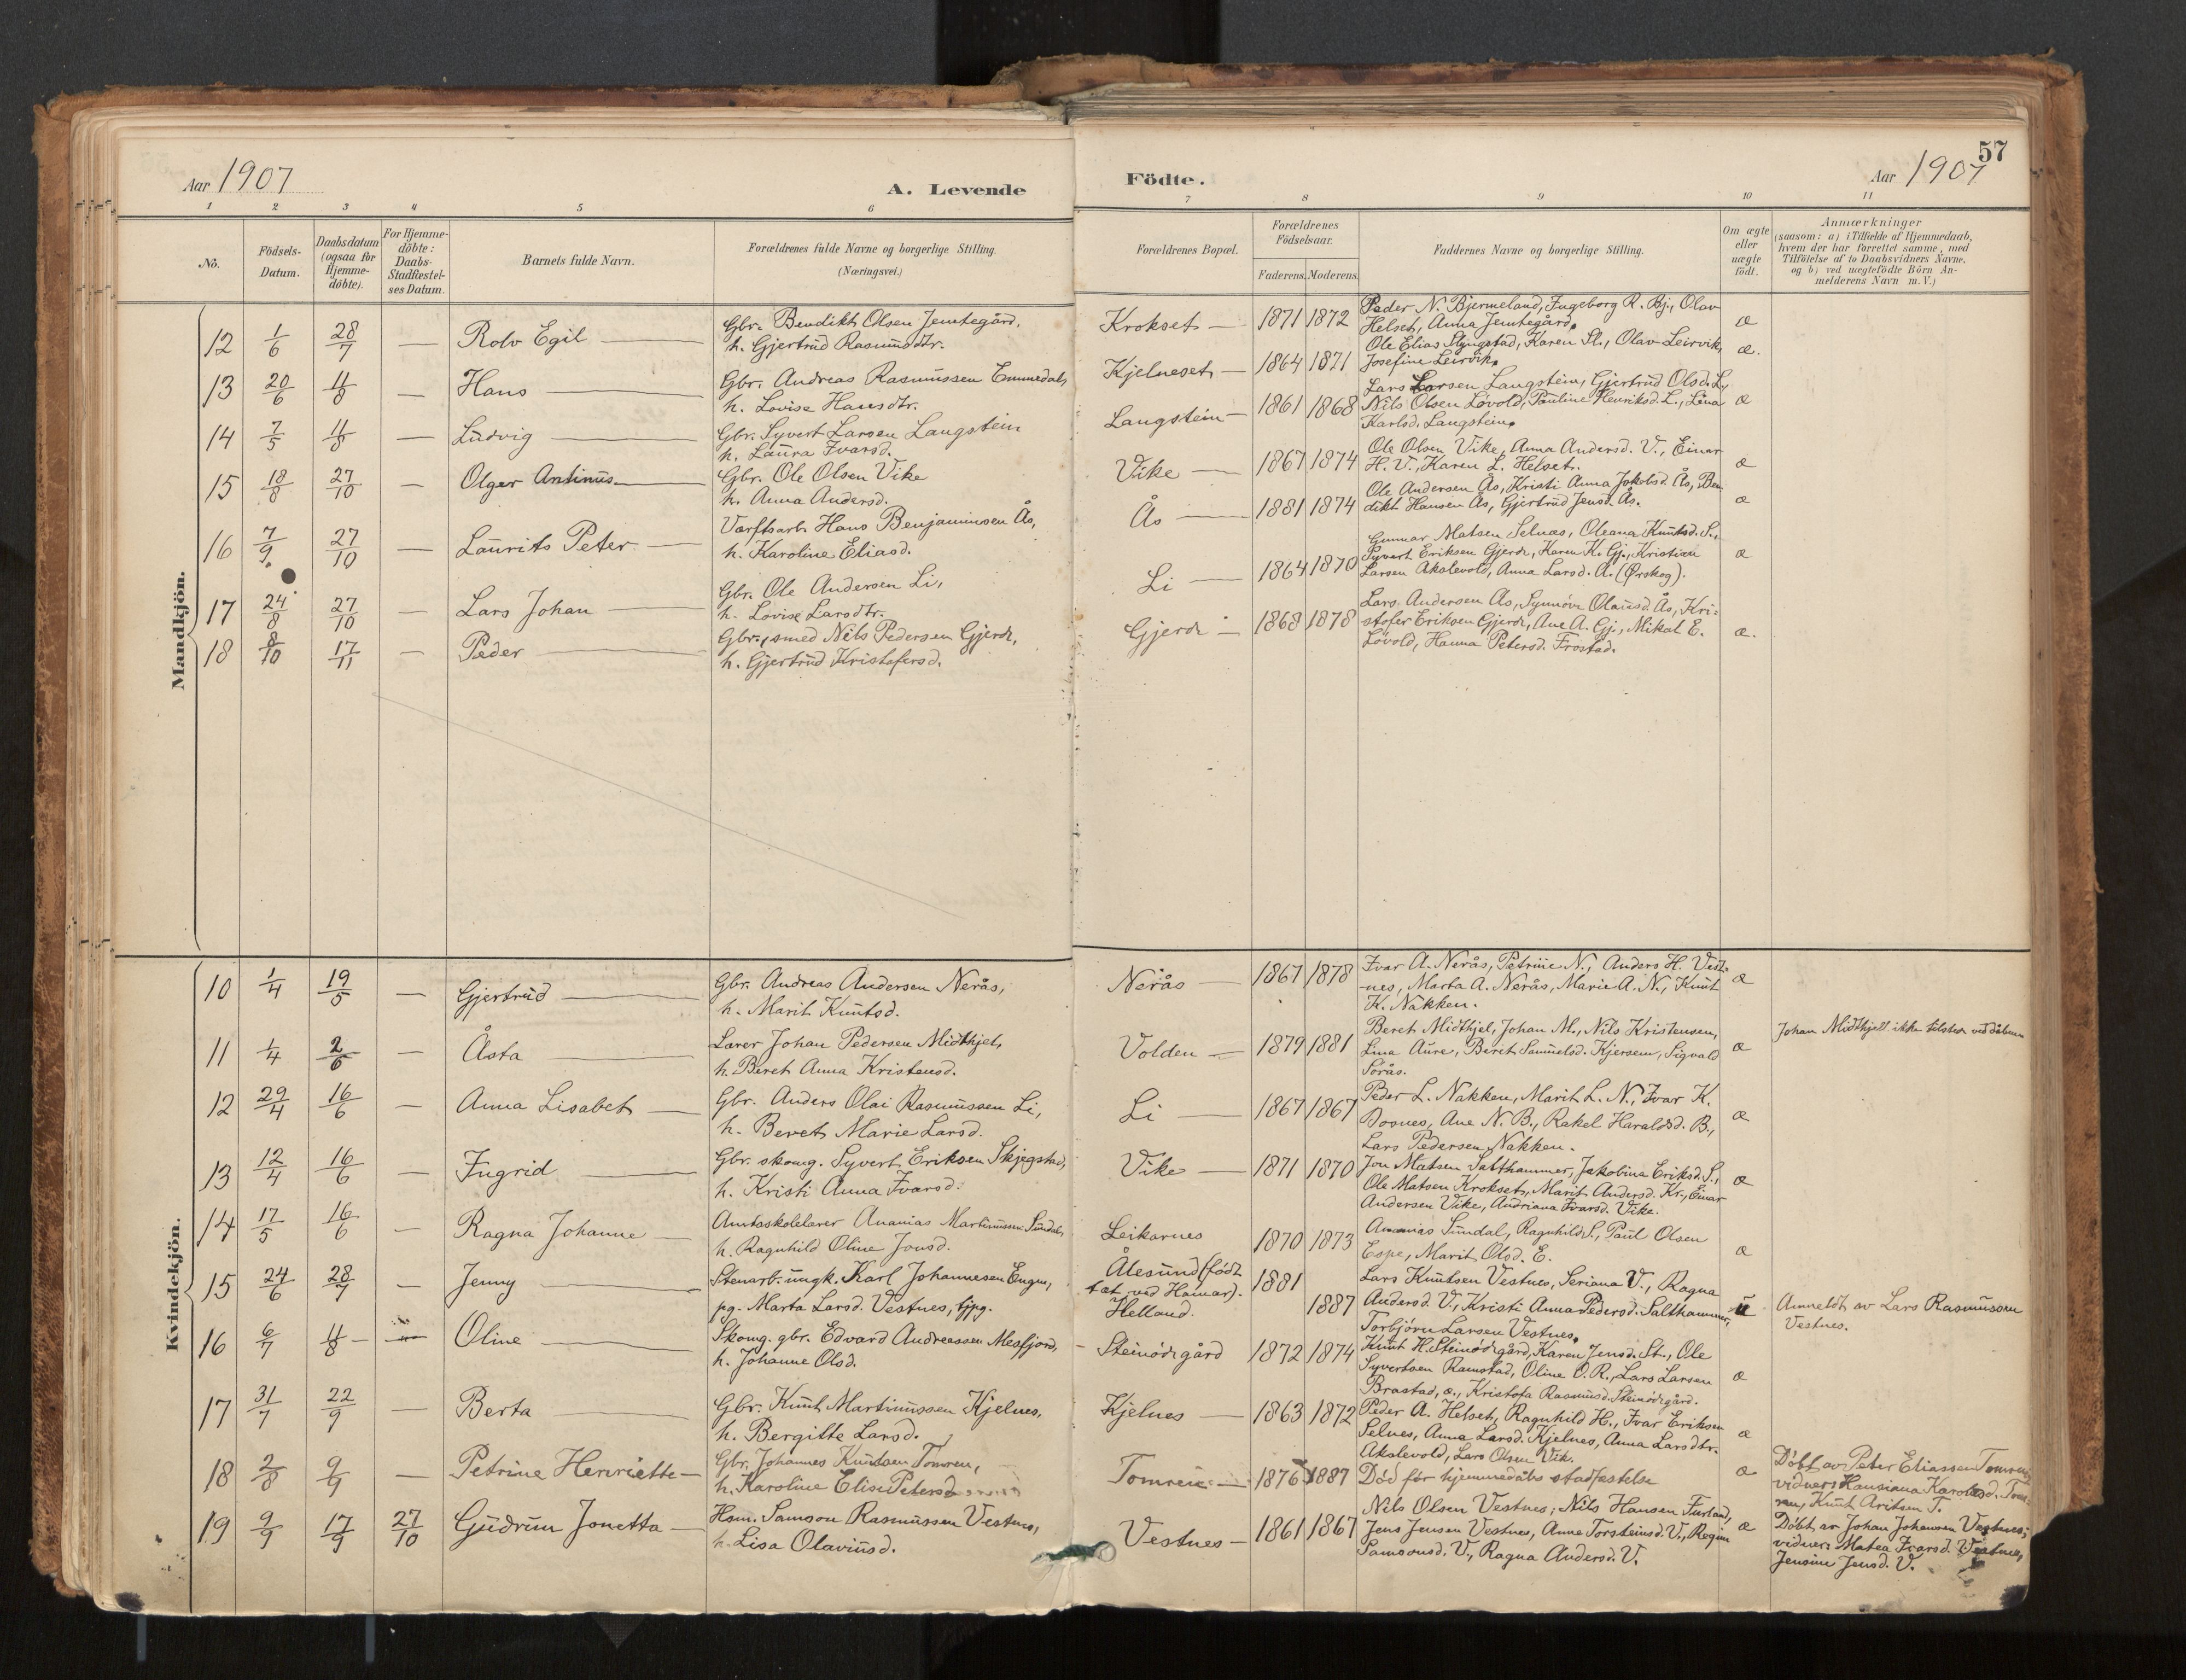 57
Aar 1907
A. Levende
Födte.
Aar 1907
1 2 3 4 5 6 7 8 9 10 11
No.
Födsels-Datum.
Daabsdatum (ogsaa for Hjemme-döbte).
For Hjemme-döbte: Daabs-Stadfæstel-ses Datum.
Barnets fulde Navn.
Forældrenes fulde Navne og borgerlige Stilling.
(Næringsvei.)
Forældrenes Bopæl.
Forældrenes Födselsaar.
Faderens. Moderens.
Faddernes Navne og borgerlige Stilling.
Om ægte eller uægte födt.
Anmærkninger
(saasom: a) i Tilfælde af Hjemmedaab,
hvem der har forrettet samme, med
Tilföielse af to Daabsvidners Navne,
og b) ved uægtefödte Börn An-
melderens Navn m. V.)
Mandkjön.
12 1/6 28/7 — Rolv Egil — Gbr. Bendikt Olsen Jemtegård,
h. Gjertrud Rasmusdtr.
Krokset — 1871 1872 Peder N. Bjermeland, Ingeborg R. Bj., Olav
Helset, Anna Jemtegård. æ
13 20/6 11/8 — Hans — Gbr. Andreas Rasmussen Emmedal,
h. Lovise Hansdtr.
Kjelneset — 1864 1871 Ole Elias Slyngstad, Karen Sl., Olav Leirvik,
Josefine Leirvik. æ.
14 7/5 11/8 — Ludvig — Gbr. Syvert Larsen Langstein
h. Laura Ivarsd.
Langstein — 1861 1868 Lars Larsen Langstein, Gjertrud Olsd. L.,
Nils Olsen Løvold, Pauline Henriksd. L., Lina
Karlsd. Langstein. æ
15 18/8 27/10 — Olger Antinus — Gbr. Ole Olsen Vike
h. Anna Andersd.
Vike — 1867 1874 Ole Olsen Vike, Anna Andersd. V., Einar
H. V., Karen L. Helset. æ
16 7/9 27/10 — Laurits Peter — Værftsarb. Hans Benjaminsen Ås,
h. Karoline Eliasd.
Ås — 1881 1874 Ole Andersen Ås, Kristi Anna Jakobsd. Ås, Ben
dikt Hansen Ås, Gjertrud Jensd. Ås. æ
17 24/8 27/10 — Lars Johan — Gbr. Ole Andersen Li,
h. Lovise Larsdtr.
Li — 1864 1870 Gunnar Matsen Selnæs, Oleana Knutsd. S.,
Syvert Eriksen Gjerde, Karen K. Gj., Kristian
Larsen Akslevold, Anna Larsd. A. (Ørskog). æ
18 8/10 17/11 — Peder — Gbr., smed Nils Pedersen Gjerde,
h. Gjertrud Kristofersd.
Gjerde — 1868 1878 Lars Andersen Ås, Synnöve Olausd. Ås, Kri-
stofer Eriksen Gjerde, Ane A. Gj., Mikal E.
Løvold, Hanna Petersd. Frostad. æ.
Kvindekjön.
10 1/4 19/5 — Gjertrud — Gbr. Andreas Andersen Nerås,
h. Marit Knutsd.
Nerås — 1867 1878 Ivar A. Nerås, Petrine N., Anders H. Vest-
-nes, Marta A. Nerås, Marie A. N., Knut
K. Nakken. æ
11 1/4 2/6 — Åsta — Lærer Johan Pedersen Midthjel,
h. Beret Anna Kristensd.
Volden — 1879 1881 Beret Midthjel, Johan M., Nils Kristensen,
Lina Aure, Berit Samuelsd. Kjersem, Sigvald
Sörås. æ
Johan Midthjell ikke tilstede ved dåben
12 29/4 16/6 — Anna Lisabet — Gbr. Anders Olai Rasmussen Li,
h. Beret Marie Larsd.
Li — 1867 1867 Peder L. Nakken, Marit L. N., Ivar K.
Bosnes, Ane N. B., Rakel Haraldsd. B.,
Lars Pedersen Nakken. æ
13 12/4 16/6 — Ingrid — Gbr. skomg. Syvert Eriksen Skjegstad,
h. Kristi Anna Ivarsd.
Vike — 1871 1870 Jon Matsen Salthammer, Jakobina Eriksd. S.,
Ole Matsen Krokset, Marit Andersd. Kr., Einar
Andersen Vike, Andriana Ivarsd. Vike. æ
14 17/5 16/6 — Ragna Johanne — Amtsskolelærer Ananias Martinussen Sundal,
h. Ragnhild Oline Jonsd.
Leikarnes 1870 1873 Ananias Sundal, Ragnhild S., Paul Olsen
Espe, Marit Olsd. E. æ
15 24/6 28/7 — Jenny — Stenarb. ungk. Karl Johannesen Engen,
pg. Marta Larsd. Vestnes, tjpg.
Ålesund (født
tæt ved Hamar).
Helland. 1881
1887 Lars Knutsen Vestnes, Seriana V., Ragna
Andersd. V., Kristi Anna Pedersd. Salthammer,
Torbjörn Larsen Vestnes. u
Anmeldt av Lars Rasmussen
Vestnes.
16 6/7 11/8 — Oline — Skomg. gbr. Edvard Andreassen Mesfjord,
h. Johanne Olsd.
Steinödegård 1872 1874 Knut H. Steinödegård, Karen Jensd. St., Ole
Syvertsen Ramstad, Oline O. R., Lars Larsen
Brastad, æ., Kristofa Rasmusd. Steinödegård. æ
17 31/7 22/9 — Berta — Gbr. Knut Martinussen Kjelnes,
h. Bergitte Larsd.
Kjelnes — 1863 1872 Peder A. Helset, Ragnhild H., Ivar Eriksen
Selnes, Anna Larsd. Kjelnes, Anna Larsdtr.
Akslevold, Lars Olsen Vik. æ
18 2/8 9/9 — Petrine Henriette — Gbr. Johannes Knutsen Tomren,
h. Karoline Elise Petersd.
Tomrein — 1876 1887 Död för hjemmedåbs stadfæstelse æ
Döbt av Peter Eliassen Tomren,
vidner: Hansiana Karolsd. Tom-
ren, Knut Aritsen T.
19 9/9 17/9 27/10 Gudrun Jonetta — Hsm. Samson Rasmussen Vestnes,
h. Lisa Olaviusd.
Vestnes — 1861 1867 Nils Olsen Vestnes, Nils Hansen Furland,
Jens Jensen Vestnes, Anne Torsteinsd. V., Regine
Samsonsd. V., Ragna Andersd. V. æ
Döbt av Johan Johansen Vestnes;
vidner: Matea Ivarsd. Vestnes,
Jensine Jensd. V.